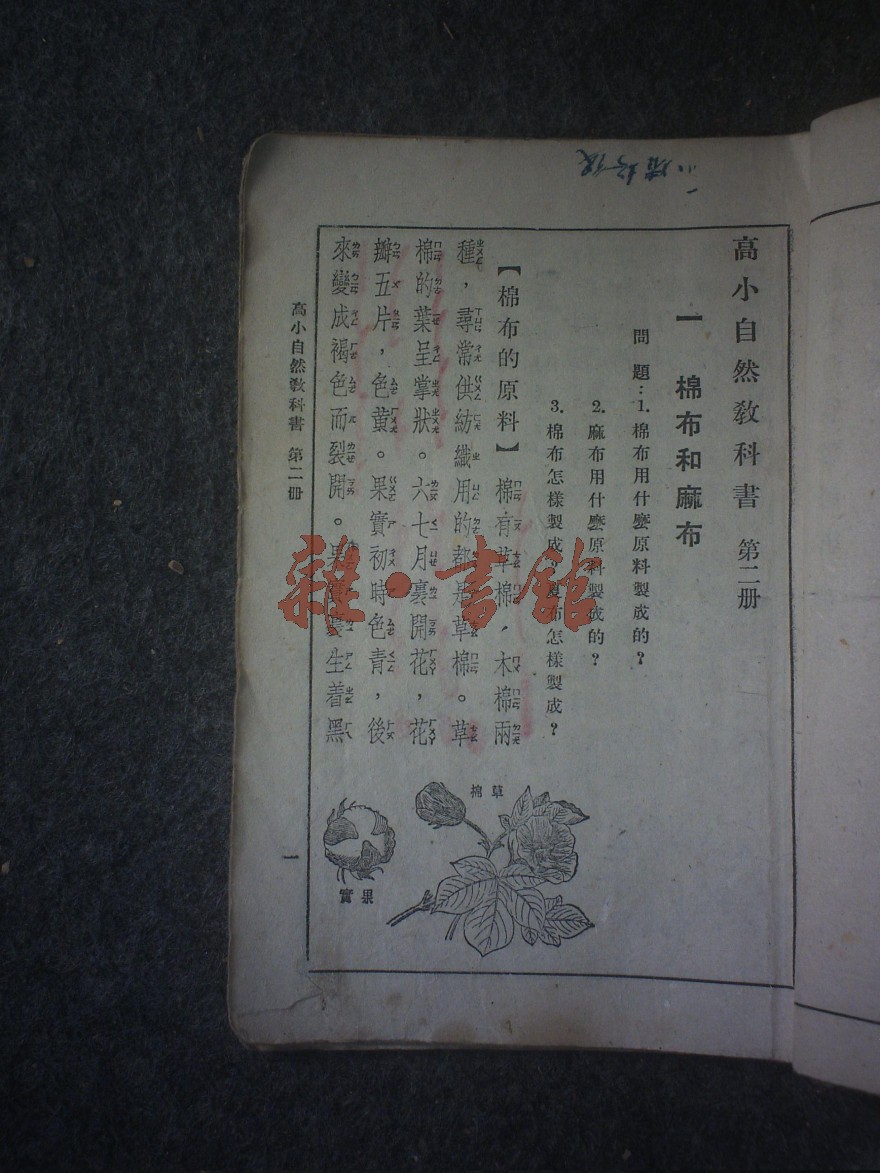 高小自然教科書 第二册
一 棉布和麻布
問題:1. 棉布用什麼原料製成的?
2. 麻布用什麼原料製成的?
3. 棉布怎樣製成?夏布怎樣製成?
【棉布的原料】 棉有草棉,木棉兩
種,尋常供紡織用的都是草棉。草
棉的葉呈掌狀。六七月裏開花,花
瓣五片,色黃。果實初時色青,後
來變成褐色而裂開。果實裏生着黑
草棉
果實
高小自然教科書 第二册
一
雜·書館